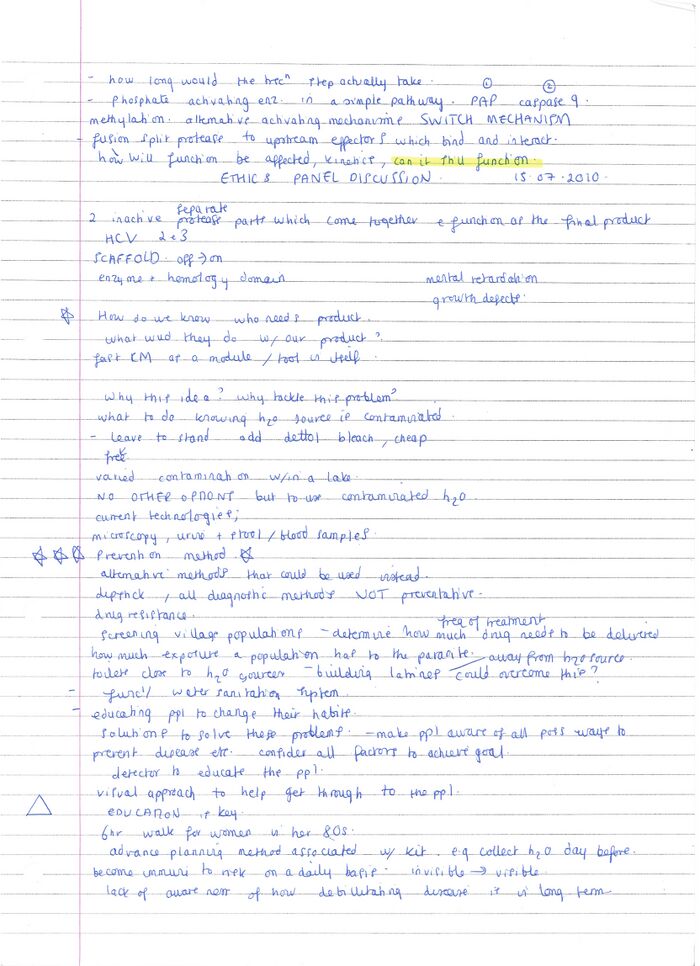 - how long would the hrcⁿ step actually take.
① ②
- phosphate activating enz. in a simple pathway. PAP caspase 9.
methylation. alternative activating mechanisms SWITCH MECHANISM
- fusion split protease to upstream effectors which bind and interact.
how will function be affected, kinetics, can it still function.
ETHICS PANEL DISCUSSION. 15.07.2010.
separate
2 inactive protease parts which come together & function as the final product
HCV 2 & 3
SCAFFOLD off → on
enzyme + homology domain mental retardation
growth defects.
☆ How do we know who needs product.
what wud they do w/ our product?
fast CM as a module / tool in itself.
Why this idea? why tackle this problem?
what to do knowing h2o source is contaminated.
- leave to stand add dettol bleach, cheap
free
varied contamination w/in a lake.
NO OTHER OPTIONS but to use contaminated h2o.
current technologies;
microscopy, urine + stool / blood samples.
☆ ☆ ☆ Prevention method ☆
alternative methods that could be used instead.
dipstick, all diagnostic methods NOT preventative.
drug resistance.
freq of treatment
screening village populations - determine how much drug needs to be delivered
how much exposure a population has to the parasite. away from h2o source.
toilets close to h2o sources - building latrines could overcome this?
- water sanitation system.
- educating ppl to change their habits.
solutions to solve these problems. - make ppl aware of all poss ways to
prevent disease etc. consider all factors to achieve goal.
detector to educate the ppl.
visual approach to help get through to the ppl.
△ EDUCATION is key.
6hr walk for women in her 80s.
advance planning method associated w/ kit. e.g collect h2o day before.
become immune to risk on a daily basis - invisible → visible.
lack of awareness of how debilitating disease is in long term